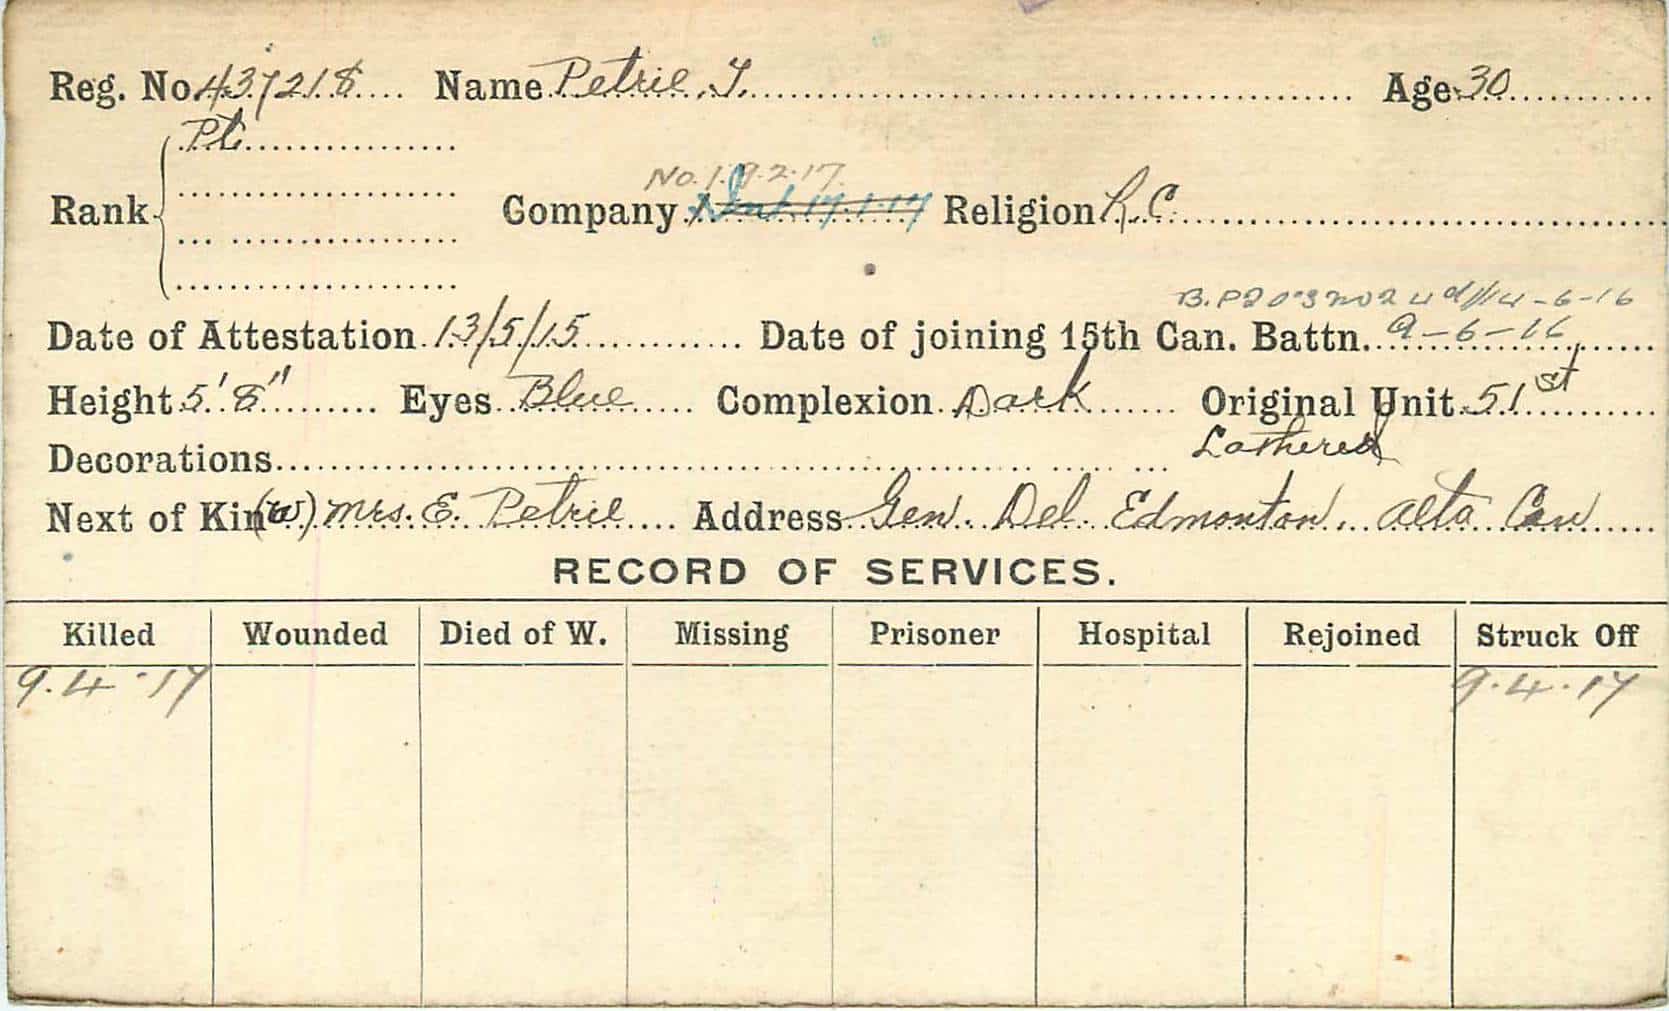 Reg. No. 437218 Name Petrie, T. Age 30
Pte
No. 1. 9.2.17.
Rank Company 1 17.1.17 Religion R.C.
B. P2 14-6-16
Date of Attestation 13/5/15 Date of joining 15th Can. Battn. 9-6-16
Height 5' 8" Eyes Blue Complexion Dark Original Unit 51st
Decorations
Next of Kin (W) Mrs. E. Petrie Address Gen. Del. Edmonton, Alta Can
RECORD OF SERVICES.
Killed Wounded Died of W. Missing Prisoner Hospital Rejoined Struck Off
9.4.17 9.4.17